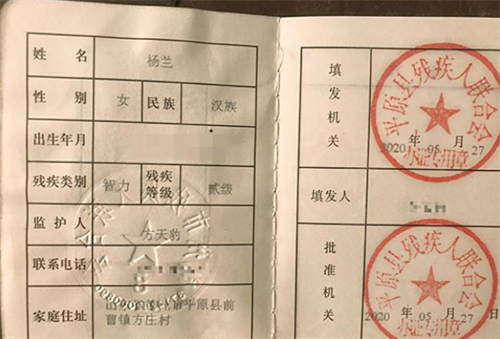 姓名 杨兰
性别 女 民族 汉族
出生年月
残疾类别 智力 残疾等级 贰级
监护人 方天豹
联系电话
家庭住址 市平原县前
曹镇方庄村
填发机关
平原县残疾人联合会
办证专用章
2020 年 05 月 27
填发人
批准机关
平原县残疾人联合会
办证专用章
2020 年 05 月 27 日